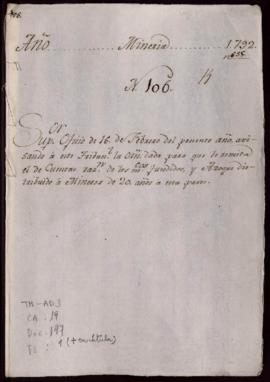 106.
Año Mineria 1792
N. 106.
Sup.or Oficio de 16 de Febrero del presente año, avi-
sando à este Tribun.l la Orn. dada para que se remita
el de Cuentas raz.n de los m.cos fundidos, y Azogue dis-
tribuido à Mineros de 20 años à esta parte.
TM-AD3
CA: 19
Doc: 197
Fs: 1 (+ caratula)